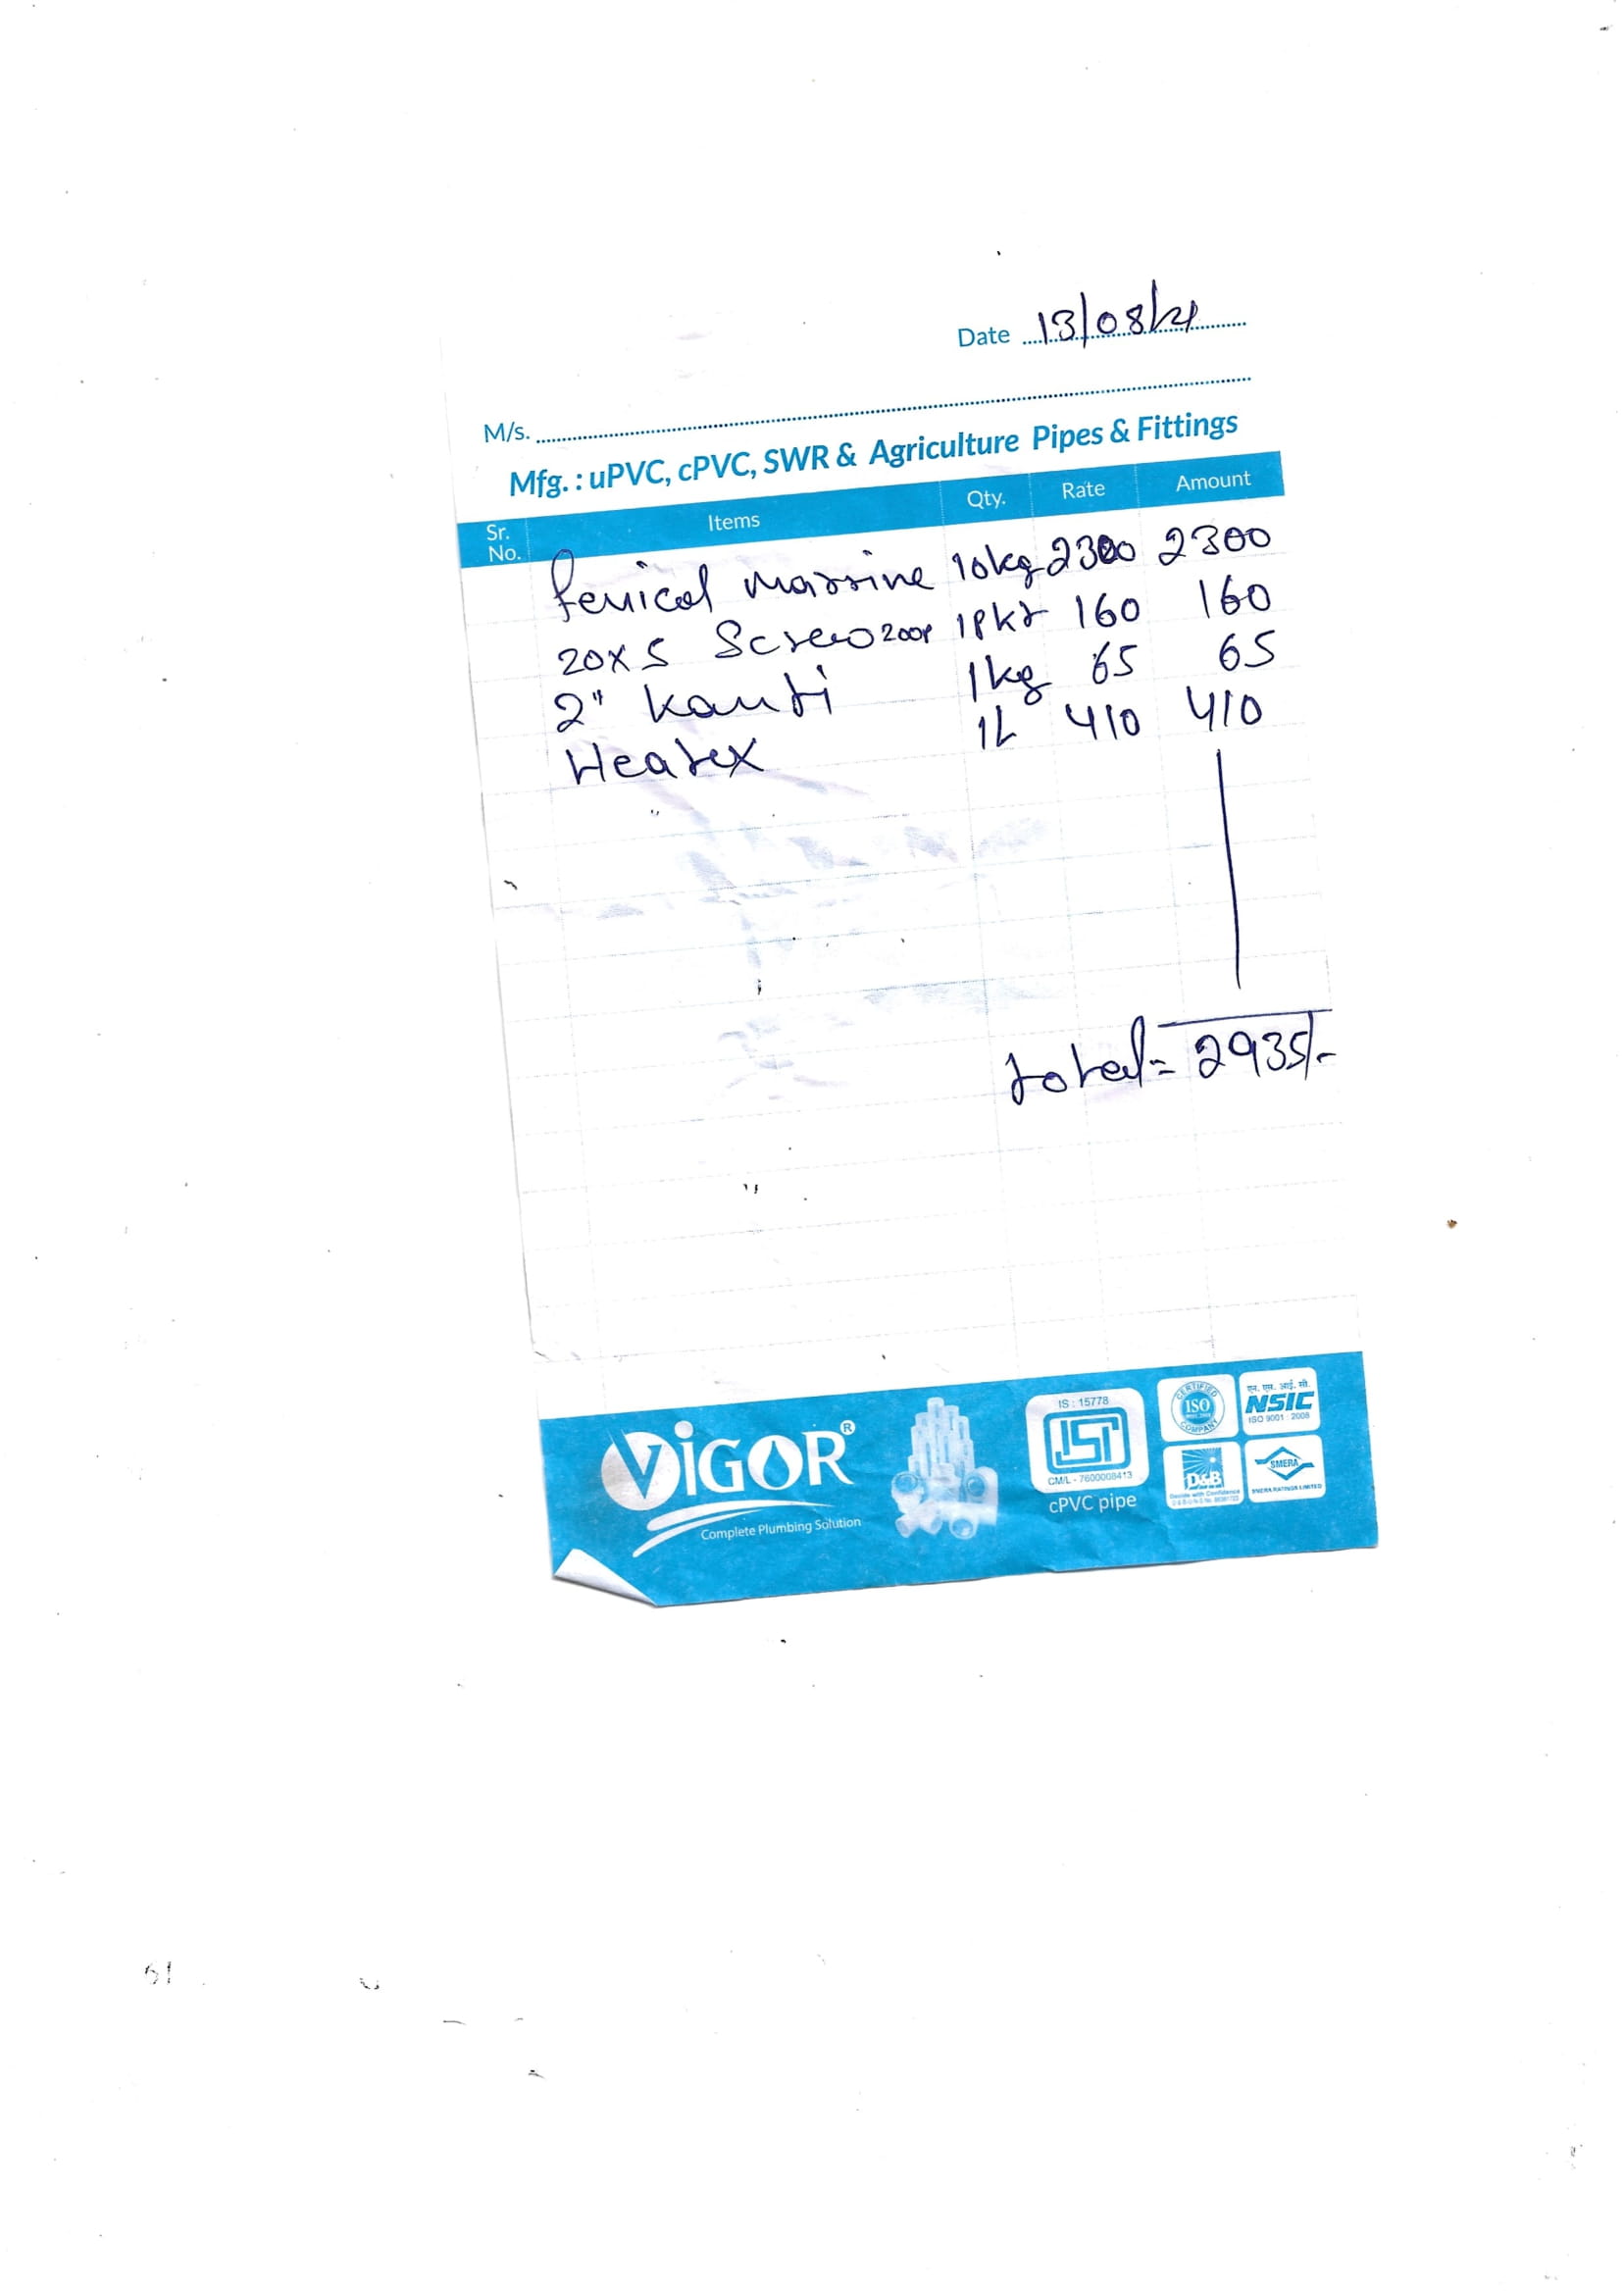 Date 13/08/21
M/s.
Mfg. : uPVC, cPVC, SWR & Agriculture Pipes & Fittings
Sr. No. Items Qty. Rate Amount
fevicol marine 10kg 2300 2300
20x5 Screw 200P 1Pkt 160 160
2" Kanti 1kg 65 65
Heatex 1L 410 410
total = 2935/-
ViGOR®
Complete Plumbing Solution
IS : 15778
ISI
CM/L - 7600008413
cPVC pipe
CERTIFIED ISO COMPANY
एन. एस. आई. सी.
NSIC
ISO 9001 : 2008
D&B
Decide with Confidence
SMERA
SMERA RATINGS LIMITED